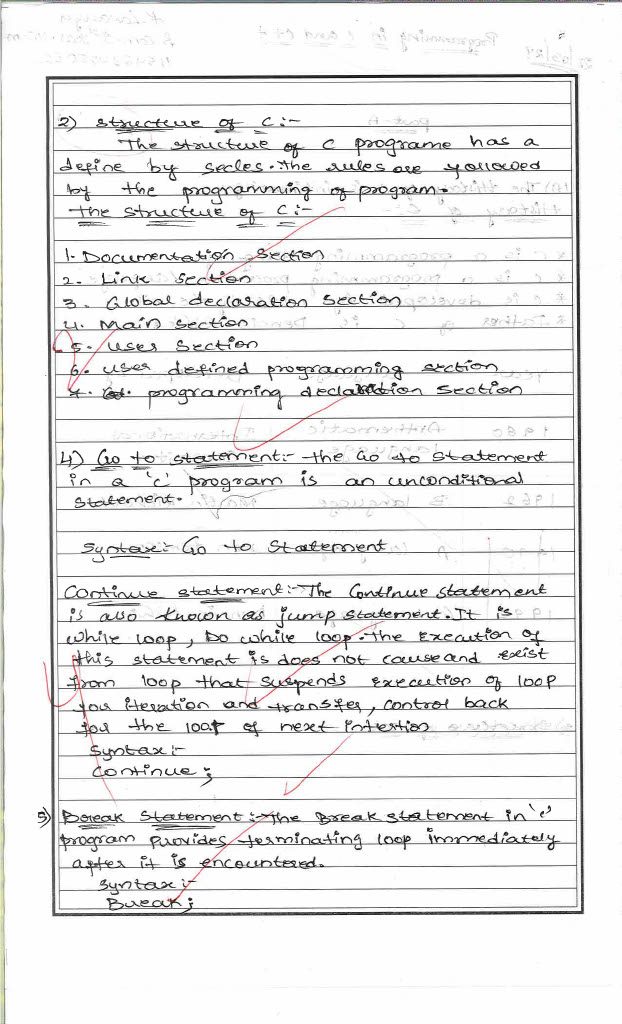 2) structure of C :-
The structure of C programe has a
define by secles. The rules are yollowed
by the programming of program.
The structure of C :-
1. Documentation Section
2. Link Section
3. Global declaration Section
4. Main section
5. User Section
6. user defined programming section
7. programming declaration Section
4) Go to statement:- the Go to Statement
in a 'c' program is an unconditional
Statement.
Syntax:- Go to Statement
Continue statement:- The Continue Statement
is also known as jump statement. It is
while loop, Do while loop. The Execution of
this statement is does not cause and exist
from loop that suspends execution of loop
for iteration and transfer, control back
for the loop of next intertion
Syntax:-
Continue;
5) Break Statement :- The Break statement in 'c'
program Provides terminating loop immediately
after it is encountered.
Syntax:-
Break;